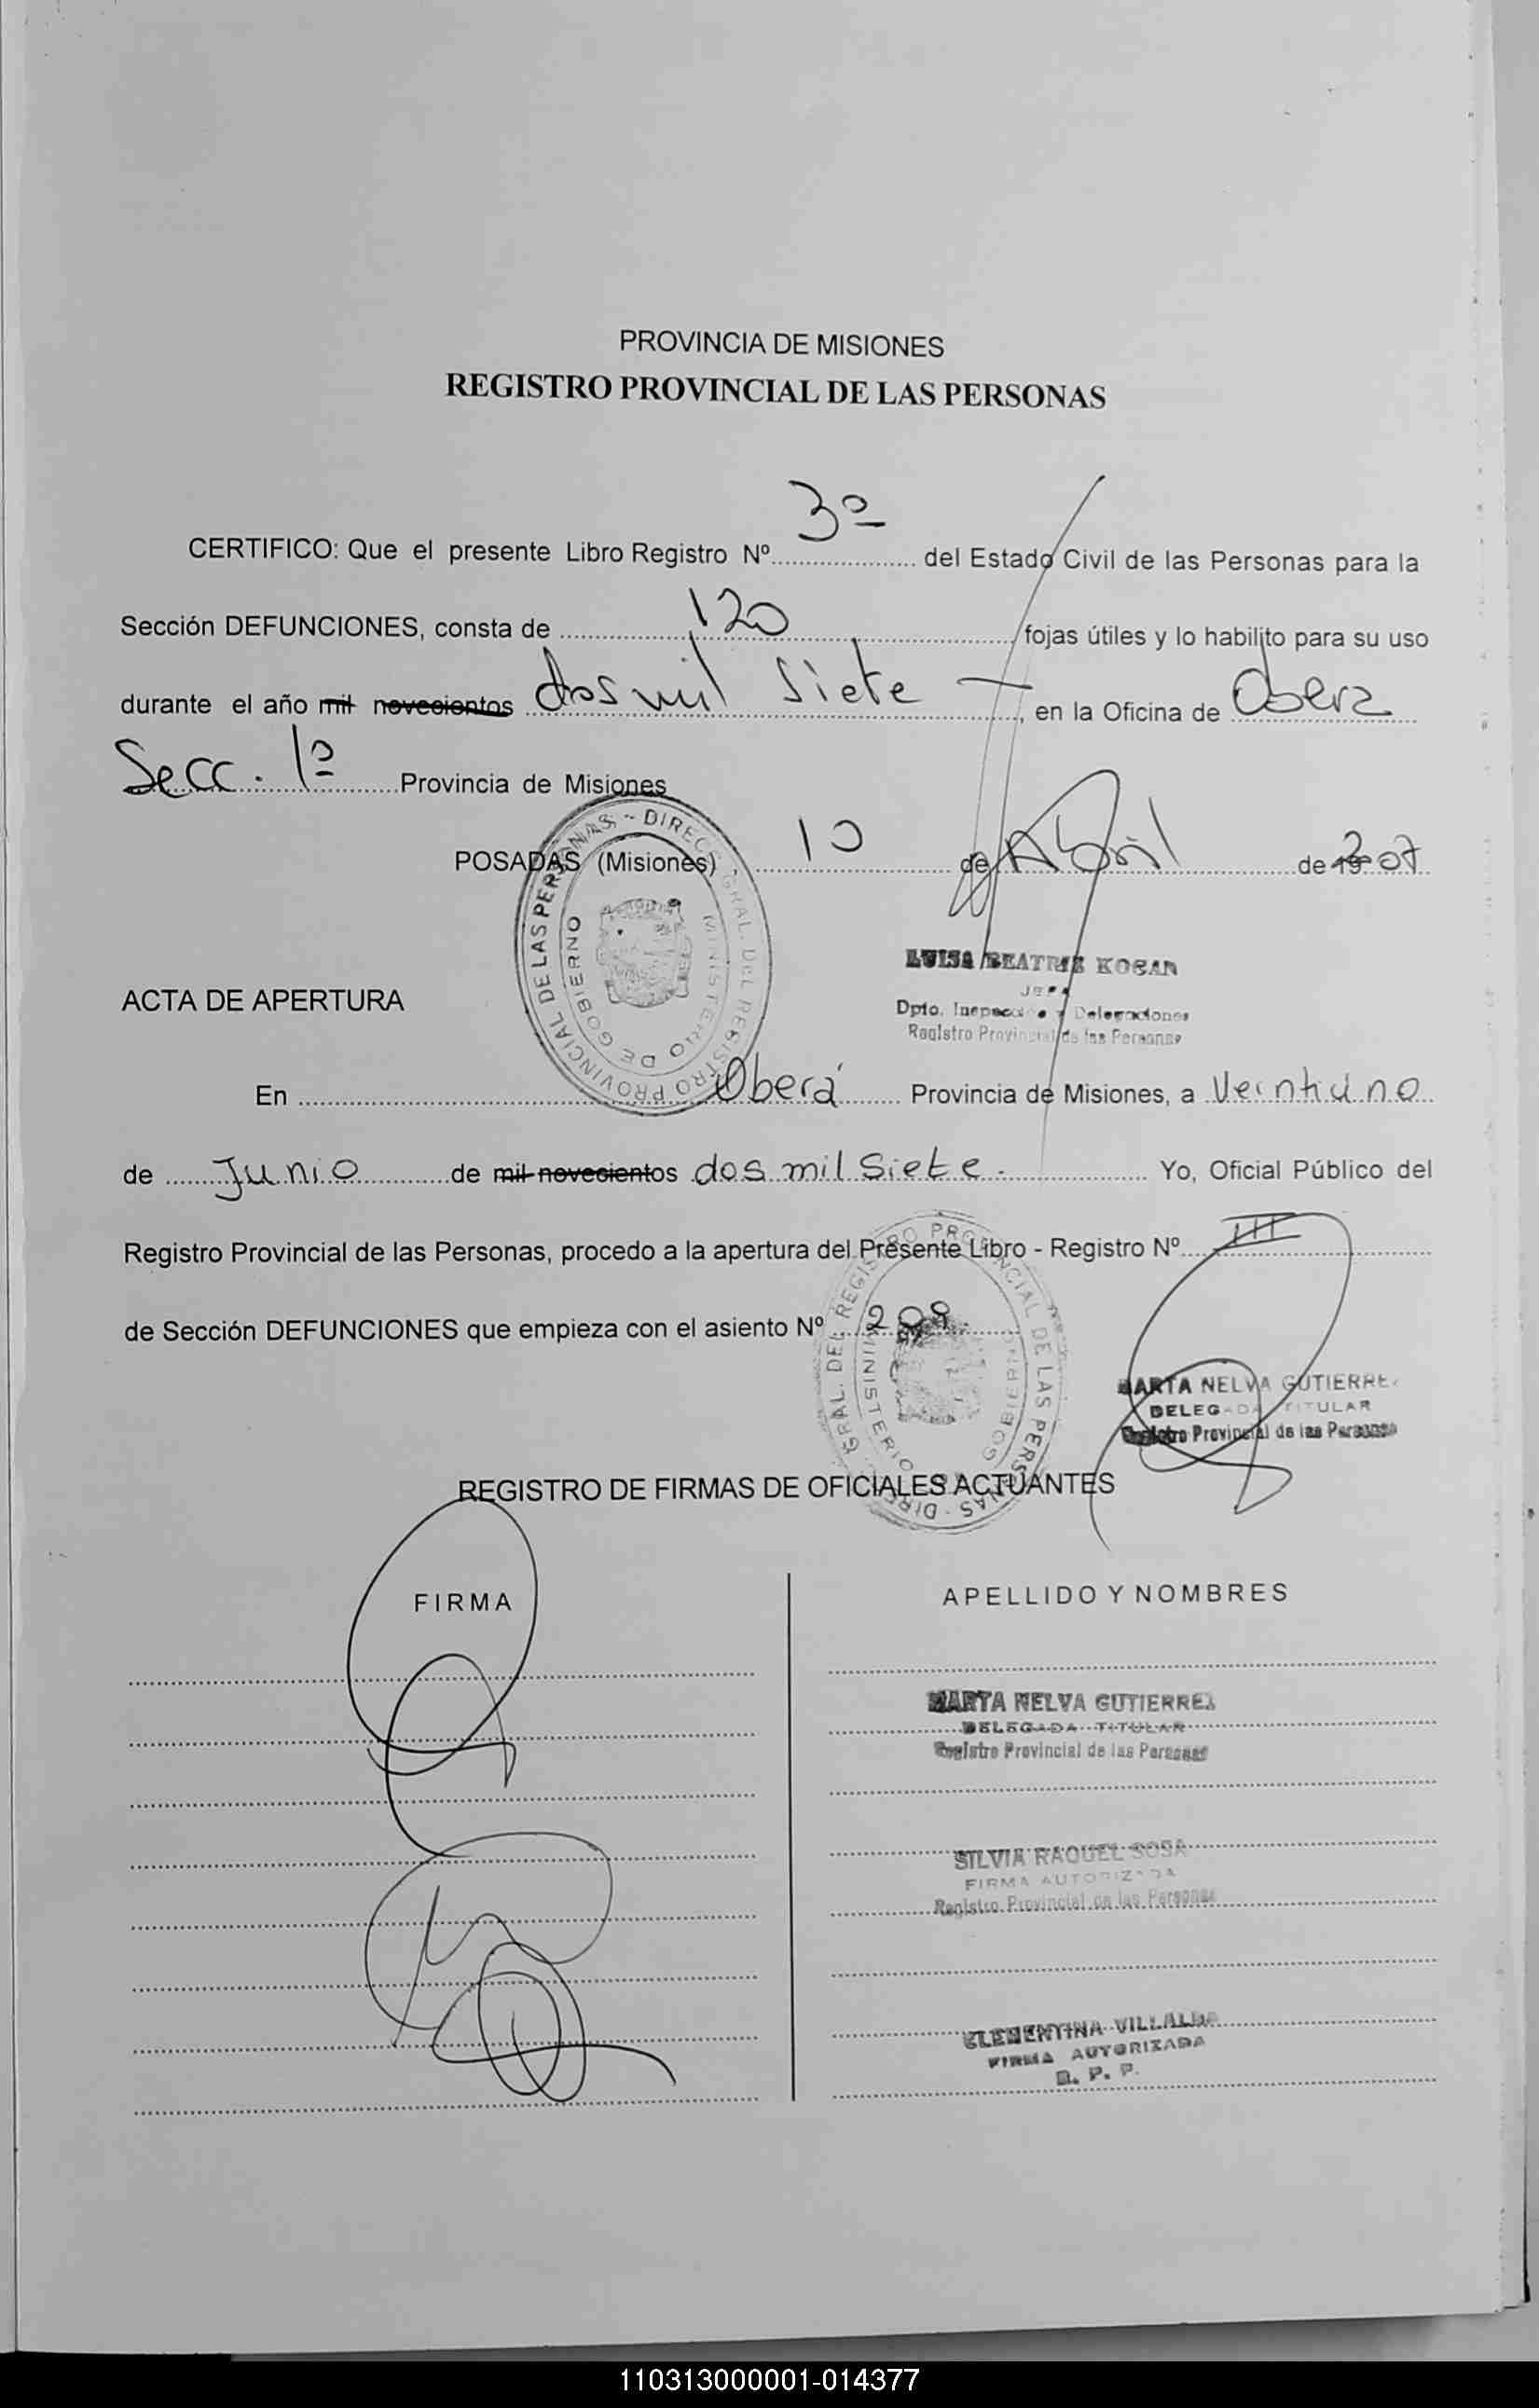 PROVINCIA DE MISIONES
REGISTRO PROVINCIAL DE LAS PERSONAS
CERTIFICO: Que el presente Libro Registro Nº 3º del Estado Civil de las Personas para la
Sección DEFUNCIONES, consta de 120 fojas útiles y lo habilito para su uso
durante el año mil novecientos dos mil siete — en la Oficina de Obera
Secc. 1º Provincia de Misiones
POSADAS (Misiones) 10 de Abril de 07
LUISA BEATRIZ KOSAN
JEFA
Dpto. Inspección y Delegaciones
Registro Provincial de las Personas
ACTA DE APERTURA
En Oberá Provincia de Misiones, a Veintiuno
de Junio de mil novecientos dos mil siete. Yo, Oficial Público del
Registro Provincial de las Personas, procedo a la apertura del Presente Libro - Registro Nº III
de Sección DEFUNCIONES que empieza con el asiento Nº 209.
MARTA NELVA GUTIERREZ
DELEGADA TITULAR
Registro Provincial de las Personas
DIREC. GRAL. DEL REGISTRO PROVINCIAL DE LAS PERSONAS
MINISTERIO DE GOBIERNO
REGISTRO DE FIRMAS DE OFICIALES ACTUANTES
FIRMA
APELLIDO Y NOMBRES
MARTA NELVA GUTIERREZ
DELEGADA TITULAR
Registro Provincial de las Personas
SILVIA RAQUEL SOSA
FIRMA AUTORIZADA
Registro Provincial de las Personas
CLEMENTINA VILLALBA
FIRMA AUTORIZADA
R. P. P.
110313000001-014377